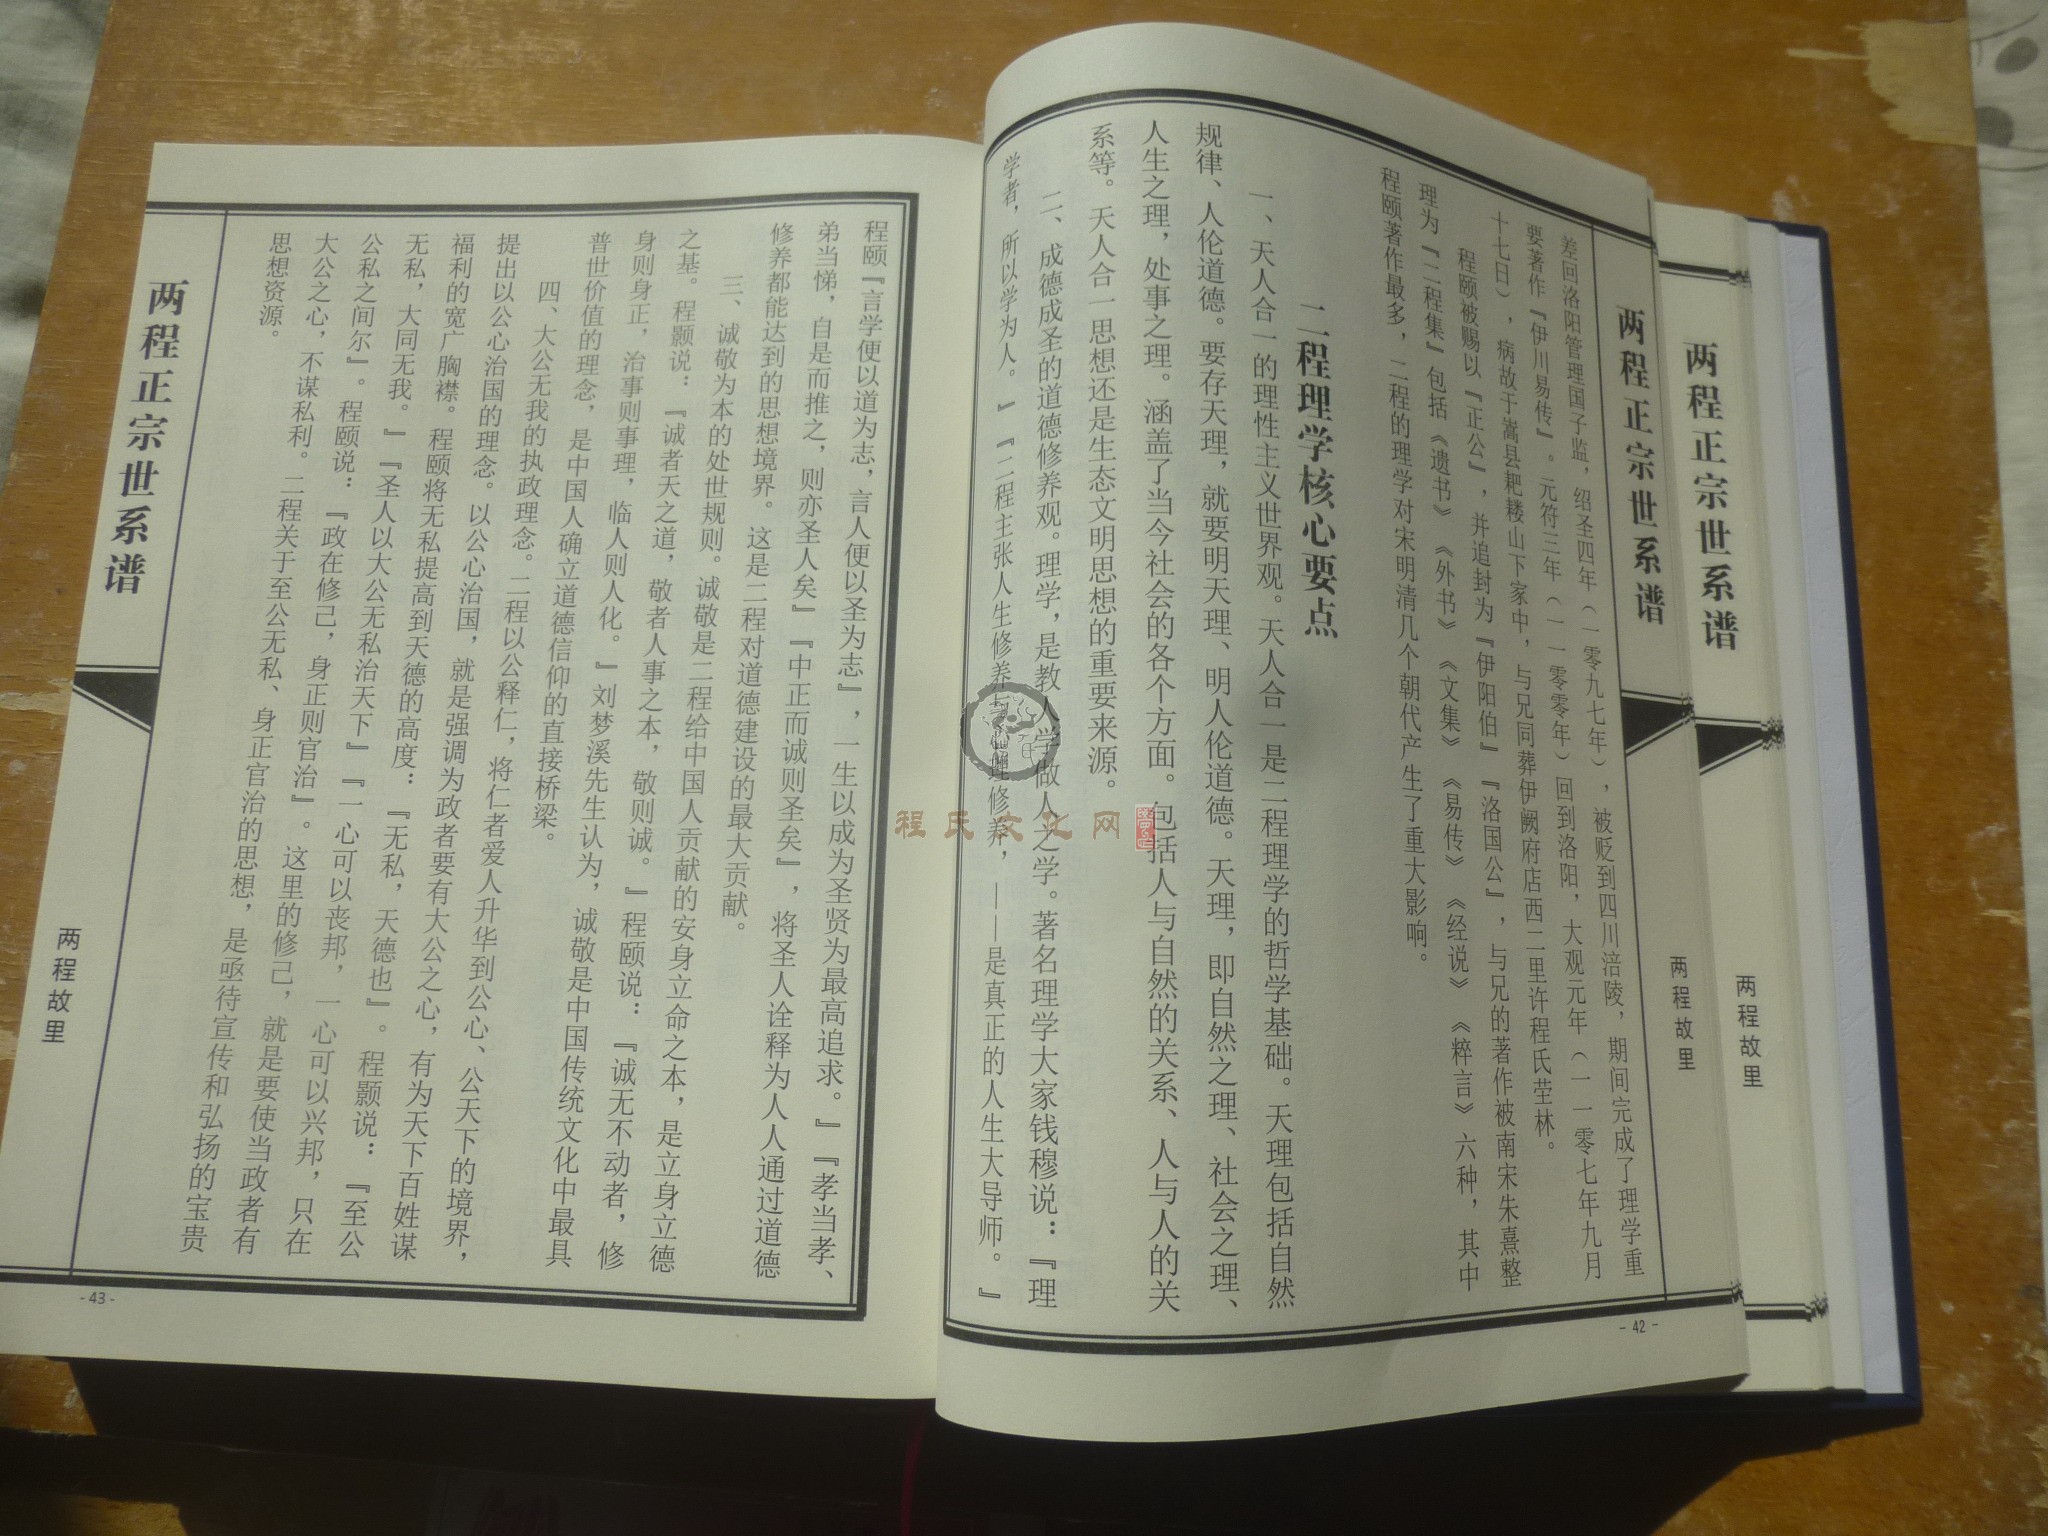 两程正宗世系谱
两程故里
两程正宗世系谱
两程故里
差回洛阳管理国子监，绍圣四年（一零九七年），被贬到四川涪陵，期间完成了理学重
要著作『伊川易传』。元符三年（一一零零年）回到洛阳，大观元年（一一零七年九月
十七日），病故于嵩县耙耧山下家中，与兄同葬伊阙府店西二里许程氏茔林。
程颐被赐以『正公』，并追封为『伊阳伯』『洛国公』，与兄的著作被南宋朱熹整
理为『二程集』包括《遗书》《外书》《文集》《易传》《经说》《粹言》六种，其中
程颐著作最多，二程的理学对宋明清几个朝代产生了重大影响。
二程理学核心要点
一、天人合一的理性主义世界观。天人合一是二程理学的哲学基础。天理包括自然
规律、人伦道德。要存天理，就要明天理、明人伦道德。天理，即自然之理、社会之理、
人生之理，处事之理。涵盖了当今社会的各个方面。包括人与自然的关系、人与人的关
系等。天人合一思想还是生态文明思想的重要来源。
二、成德成圣的道德修养观。理学，是教人学做人之学。著名理学大家钱穆说：『理
学者，所以学为人。』『二程主张人生修养与心理修养，——是真正的人生大导师。』
- 42 -
程颐『言学便以道为志，言人便以圣为志』，一生以成为圣贤为最高追求。』『孝当孝、
弟当悌，自是而推之，则亦圣人矣』『中正而诚则圣矣』，将圣人诠释为人人通过道德
修养都能达到的思想境界。这是二程对道德建设的最大贡献。
三、诚敬为本的处世规则。诚敬是二程给中国人贡献的安身立命之本，是立身立德
之基。程颢说：『诚者天之道，敬者人事之本，敬则诚。』程颐说：『诚无不动者，修
身则身正，治事则事理，临人则人化。』刘梦溪先生认为，诚敬是中国传统文化中最具
普世价值的理念，是中国人确立道德信仰的直接桥梁。
四、大公无我的执政理念。二程以公释仁，将仁者爱人升华到公心、公天下的境界，
提出以公心治国的理念。以公心治国，就是强调为政者要有大公之心，有为天下百姓谋
福利的宽广胸襟。程颐将无私提高到天德的高度：『无私，天德也』。程颢说：『至公
无私，大同无我。』『圣人以大公无私治天下』『一心可以丧邦，一心可以兴邦，只在
公私之间尔』。程颐说：『政在修己，身正则官治』。这里的修己，就是要使当政者有
大公之心，不谋私利。二程关于至公无私、身正官治的思想，是亟待宣传和弘扬的宝贵
思想资源。
两程正宗世系谱
两程故里
- 43 -
程氏文化网